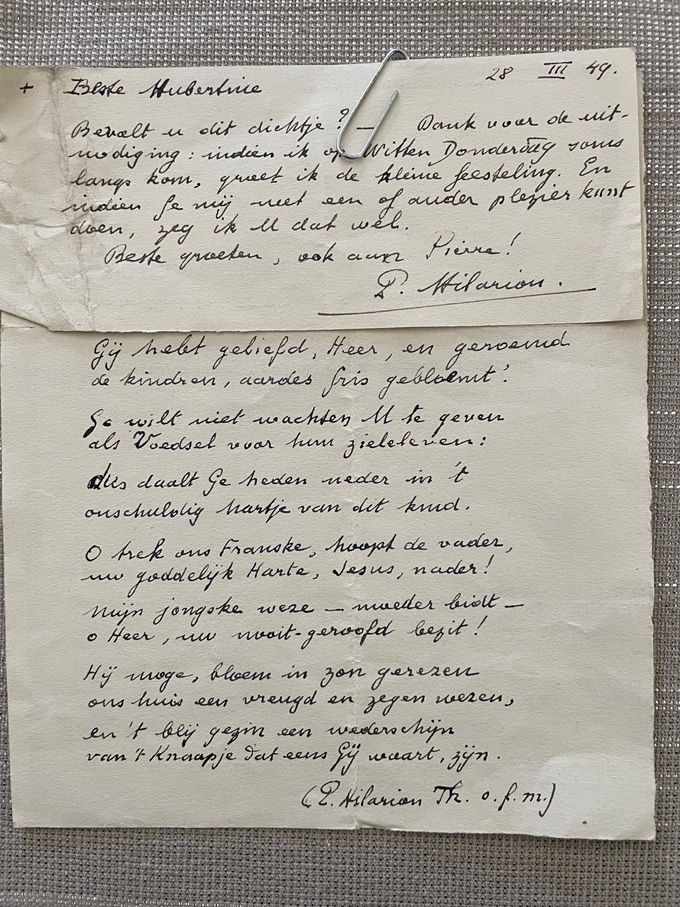 + Beste Hubertine 28 III 49.
Bevalt u dit dichtje? — Dank voor de uit-
nodiging: indien ik op Witten Donderdag soms
langs kom, groet ik de kleine feesteling. En
indien Ge mij met een of ander plezier kunt
doen, zeg ik U dat wel.
Beste groeten, ook aan Pierre!
P. Hilarion.
Gij hebt geliefd, Heer, en geroemd
de kindren, aardes fris gebloemt'.
Ge wilt niet wachten U te geven
als Voedsel voor hun zieleleven:
dus daalt Ge heden neder in 't
onschuldig hartje van dit kind.
O trek ons Franske, hoopt de vader,
uw goddelijk Harte, Jesus, nader!
Mijn jongske weze – moeder bidt –
o Heer, uw nooit-geroofd bezit!
Hij moge, bloem in zon gerezen
ons huis een vreugd en zegen wezen,
en 't blij gezin een wederschijn
van 't Knaapje dat eens Gij waart, zijn.
(P. Hilarion Th. o.f.m.)